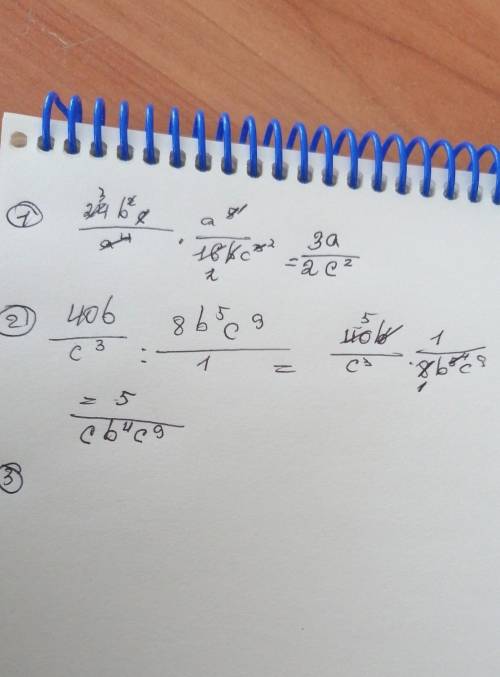 1) 24b²c/a⁴ · a⁵/16bc³ = 3a/2c²
2) 40b/c³ : 8b⁵c⁹/1 = 40b/c³ · 1/8b⁵c⁹
= 5/cb⁴c⁹
3)